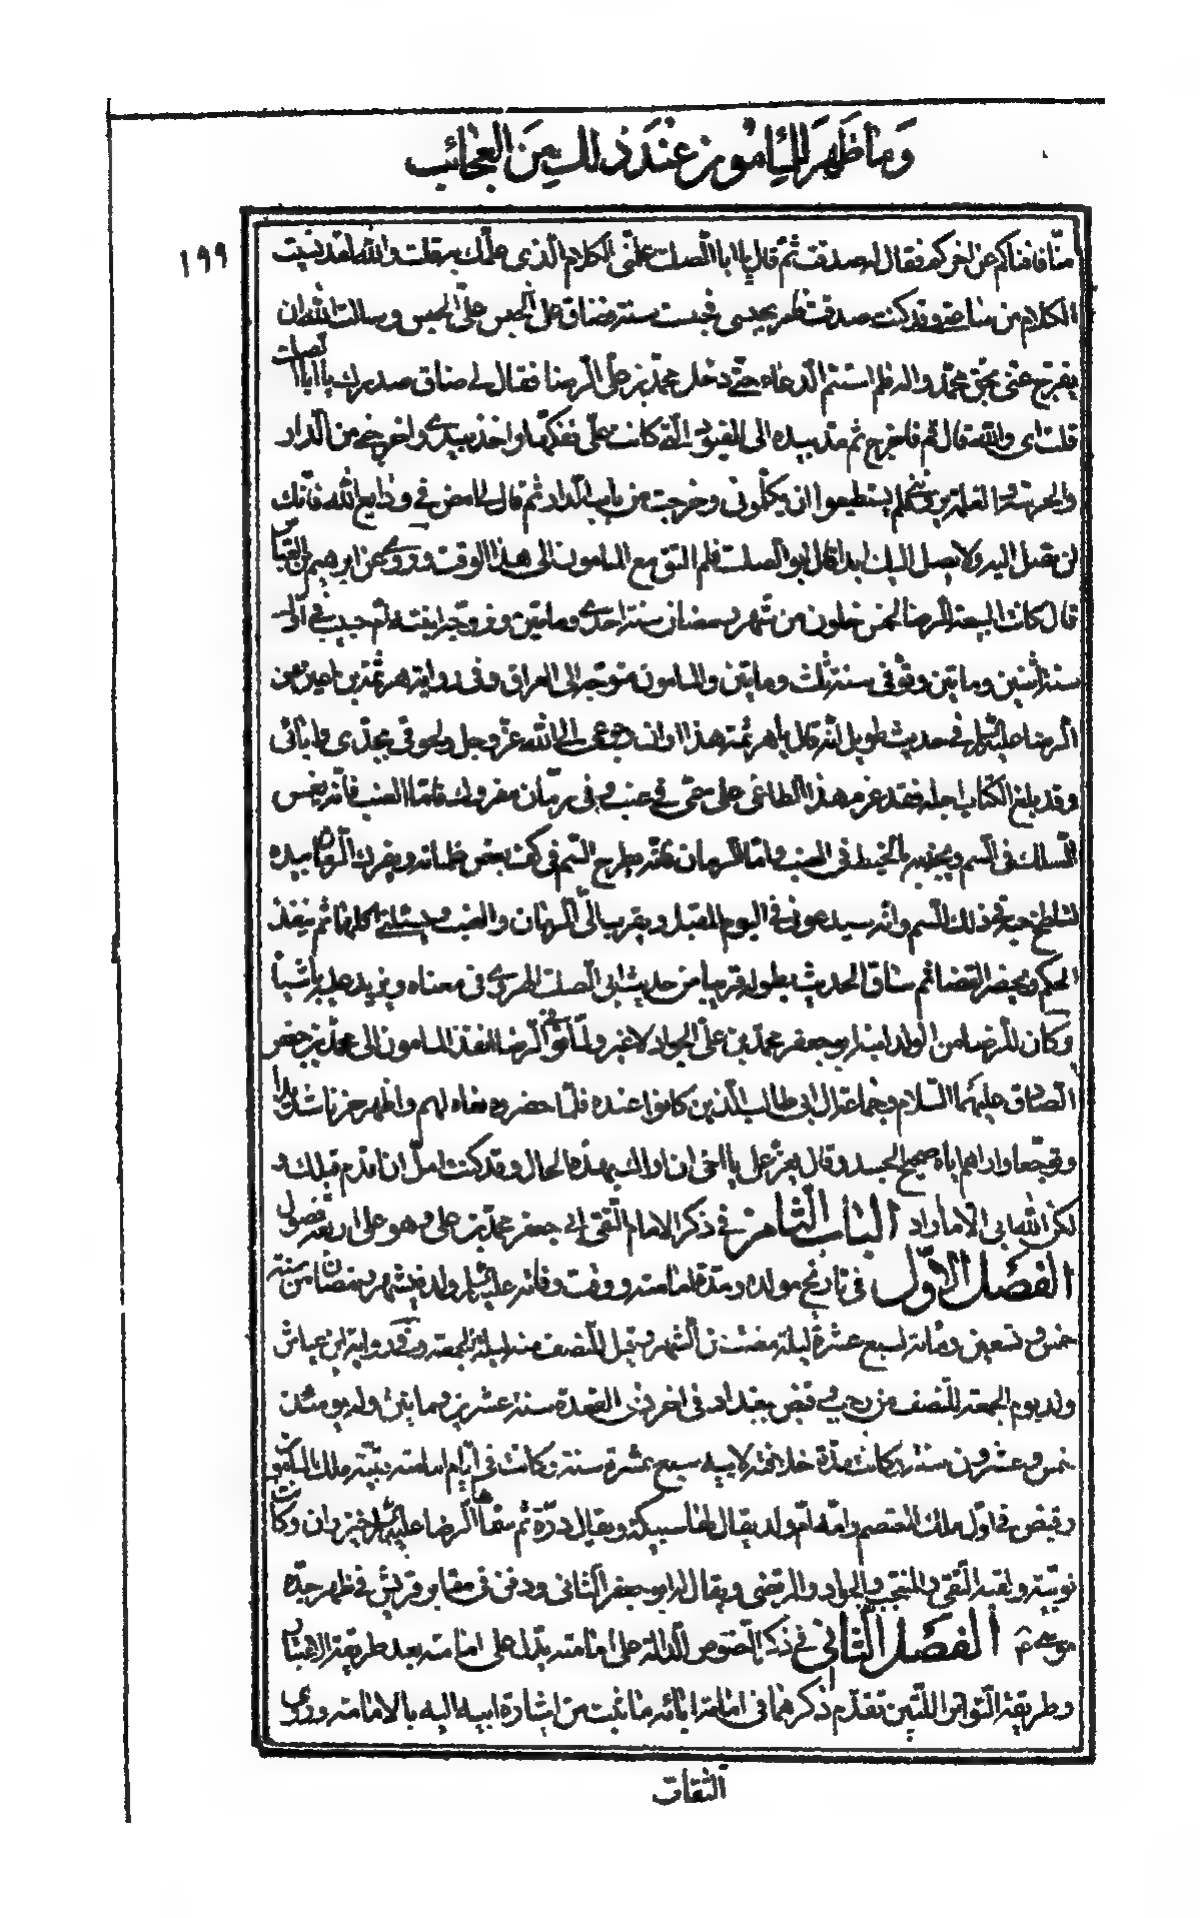 وما ظهر للمأمون عند ذلك من العجائب
١٩٩
منّا فافناكم عن اخركم فقال له صدقت ثم قال يا ابا الصلت علّمنى الكلام الّذى تكلمت به قلت والله لقد نسيت
الكلام من ساعتى وقد كنت صدقت فامر بحبسى فحبست سنة فضاق علىّ الحبس وسالت الله ان
يفرّج عنى بحق محمّد واله فلم استتم الدعاء حتى دخل محمّد بن علىّ الرضا فقال لى ضاق صدرك يا ابا الصلت
قلت اى والله قال قم فاخرج ثم مد بيده الى القيود التى كانت علىّ ففكّها واخذ بيدى واخرجنى من الدار
والحرسة والغلمة يروننى فلم يستطيعوا ان يكلّمونى وخرجت من باب الدار ثم قال لى امض فى ودايع الله فانّك
لن تصل اليه ولا يصل اليك ابدا قال ابو الصلت فلم التق مع المامون الى هذا الوقت وروى عن ابرهيم بن العباس
قال كانت البيعة للرضا لخمس خلون من شهر رمضان سنة احدى ومأتين وزوجه ابنته ام حبيب فى اول
سنة اثنين وماتين وتوفى سنة ثلث وماتين والمامون متوجه الى العراق وفى رواية هرثمة بن اعين عن
الرضا عليه السلم فى حديث طويل انّه قال يا هرثمة هذا اوان رحيلى الى الله عزّ وجل ولحوقى بجدّى وابائى
وقد بلغ الكتاب اجله فقد عزم هذا الطاغى على سمّى فى عنب ورمّان مفروك فامّا العنب فانّه يغمس
السلك فى السم ويجذبه بالخيط فى العنب وامّا الرمان فانّه يطرح السم فى كف بعض غلمانه ويفرك الرّمان بيده
ليتلطخ حبه فى ذلك السم وانّه سيدعونى فى اليوم المقبل ويقرب الىّ الرمّان والعنب ويسئلنى اكلهما ثم ينفذ
الحكم ويحضر القضا ثم ساق الحديث بطوله قريبا من حديث ابى الصلت الهروى فى معناه ويزيد عليه باشيا
وكان للرضا من الولد ابنه ابو جعفر محمّد بن علىّ الجواد لا غير ولمّا توفى الرضا انفذ المامون الى محمّد بن جعفر
الصادق عليهما السّلام وجماعة ال ابى طالب الّذين كانوا عنده فلمّا حضروه نعاه لهم واظهر حزنا شديدا
وتوجّعا واراهم اياه صحيح الجسد وقال يعز علىّ يا اخى ان اراك بهذه الحال وقد كنت امل ان اقدم قبلك و
لكن الله ابى الا ما اراد الباب الثامن فى ذكر الامام التقى ابى جعفر محمّد بن على وهو على اربعة فصول
الفصل الاوّل فى تاريخ مولده ومدّة امامته ووقت وفاته عليه السلم ولد فى شهر رمضان من سنة
خمس وتسعين ومائة لسبع عشرة ليلة مضت من الشهر وقيل للنصف منه ليلة الجمعة وفى رواية ابن عياش
ولد يوم الجمعة للنصف من رجب وقبض ببغداد فى اخر ذى القعدة سنة عشرين ومايتين وله يومئذ
خمس وعشرون سنة وكانت مدّة خلافته لابيه سبع عشرة سنة وكانت فى ايّام امامته بقيّة ملك المأمون
وقبض فى اوّل ملك المعتصم وامّه امّ ولد يقال لها سبيكة ويقال درّة ثم سمّاها الرضا عليه السلم خيزران وكانت
نوبيّة ولقبه التقى والمنتجب والجواد والمرتضى ويقال له ابو جعفر الثانى ودفن فى مقابر قريش فى ظهر جدّه
موسى ع الفصل الثانى فى ذكر النصوص الدالة على امامته يدلّ على امامته بعد طريقة الاعتبار
وطريقة التواتر اللتين تقدّم ذكرهما فى امامة ابائه ما ثبت من اشارة ابيه اليه بالامامة وروى
الثقات